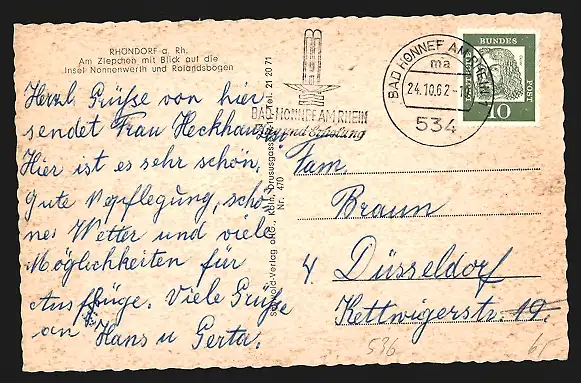 RHÖNDORF a. Rh.
Am Ziepchen mit Blick auf die
Insel Nonnenwerth und Rolandsbogen
Herzl. Grüße von hier
sendet Frau Heckhausen
Hier ist es sehr schön.
Gute Verpflegung, schö-
nes Wetter und viele
Möglichkeiten für
Ausflüge. Viele Grüße
an Hans u Gerta.
Nr. 470
Tel. 21 20 71
BAD HONNEF AM RHEIN
und Erholung
BAD HONNEF AM RHEIN
ma
24.10.62
534
DEUTSCHE BUNDESPOST
10
Fam.
Braun
4. Düsseldorf
Kettwigerstr. 19.
536